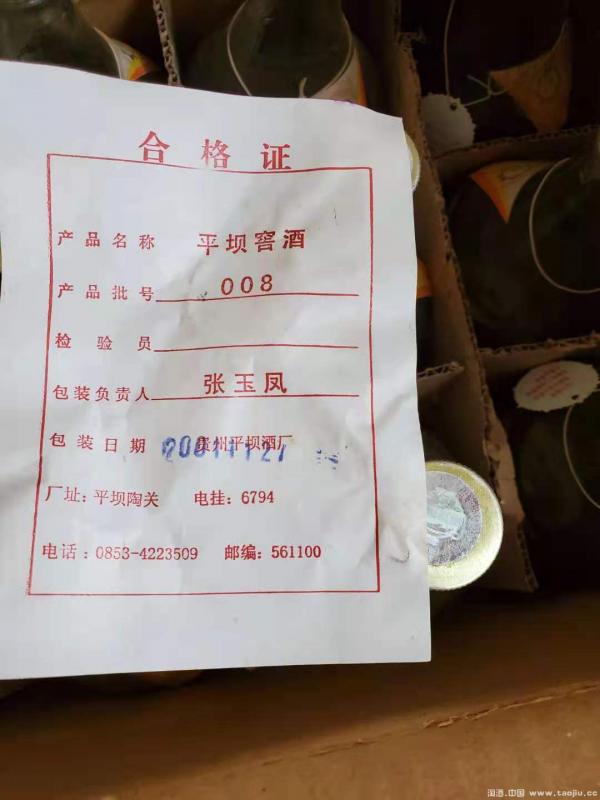 合格证
产品名称 平坝窖酒
产品批号 008
检验员
包装负责人 张玉凤
包装日期 贵州平坝酒厂
厂址:平坝陶关 电挂:6794
电话:0853-4223509 邮编:561100
淘酒.中国 www.taojiu.cc